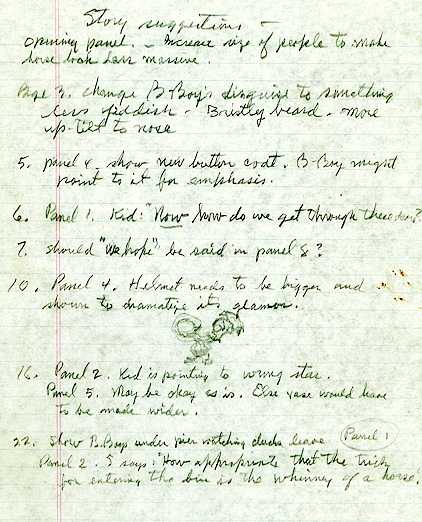 Story suggestions —
opening panel. — Increase size of people to make
horse look less massive.
Page 3. Change B-Boy's disguise to something
less yiddish — Bristly beard — more
up-tilt to nose
5. panel 4, show new button coat. B-Boy might
point to it for emphasis.
6. Panel 1. Kid: "Now how do we get through these
7. Should "we hope" be said in panel 8?
10. Panel 4. Helmet needs to be bigger and
shown to dramatize its glamor.
16. Panel 2. Kid is pointing to wrong star.
Panel 5. May be okay as is. Else vase would have
to be made wider.
22. Show B. Boys under pier watching ducks leave (Panel 1)
Panel 2. $ says: "How appropriate that the trick
for entering the bin is the whinney of a horse!